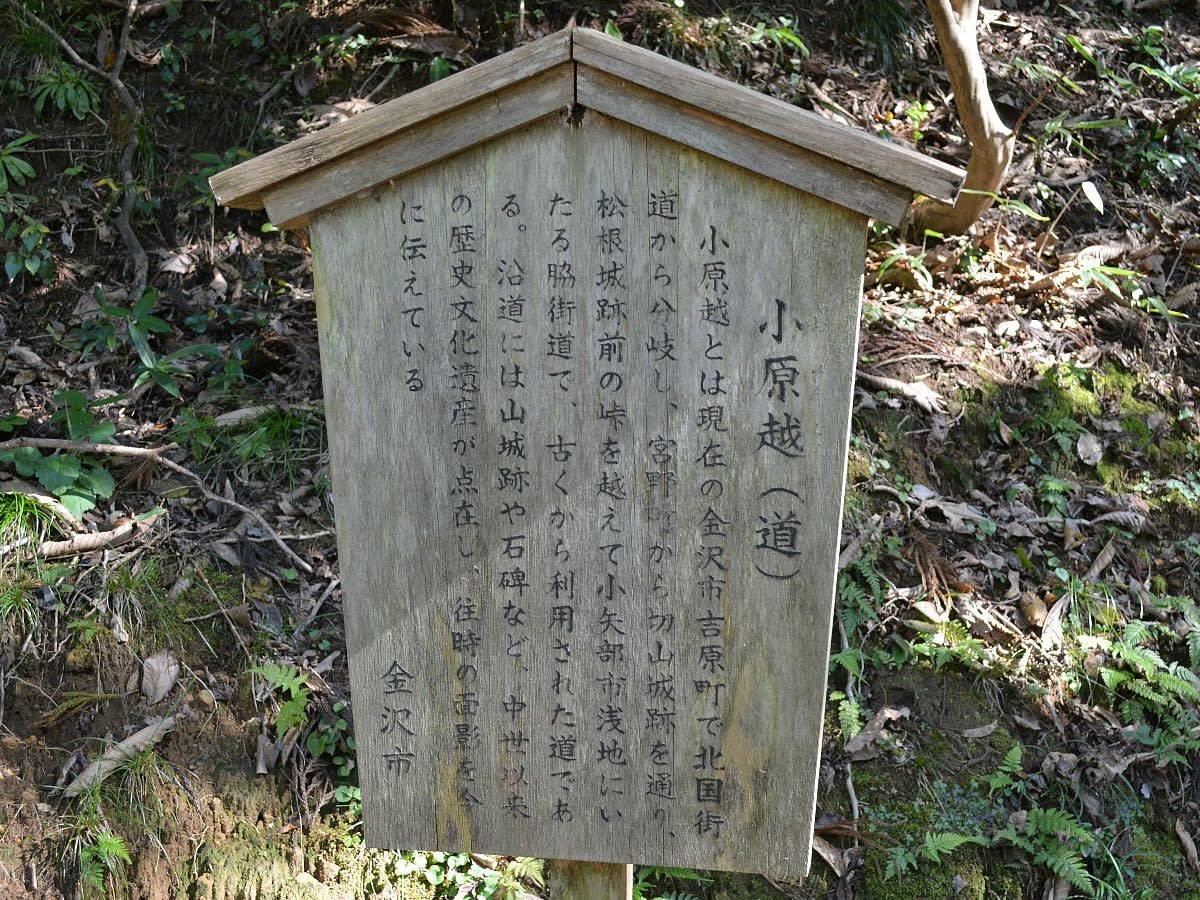 小原越（道）
小原越とは現在の金沢市吉原町で北国街
道から分岐し、宮野町から切山城跡を通り、
松根城跡前の峠を越えて小矢部市浅地にい
たる脇街道で、古くから利用された道であ
る。沿道には山城跡や石碑など、中世以来
の歴史文化遺産が点在し、往時の面影を今
に伝えている
金沢市